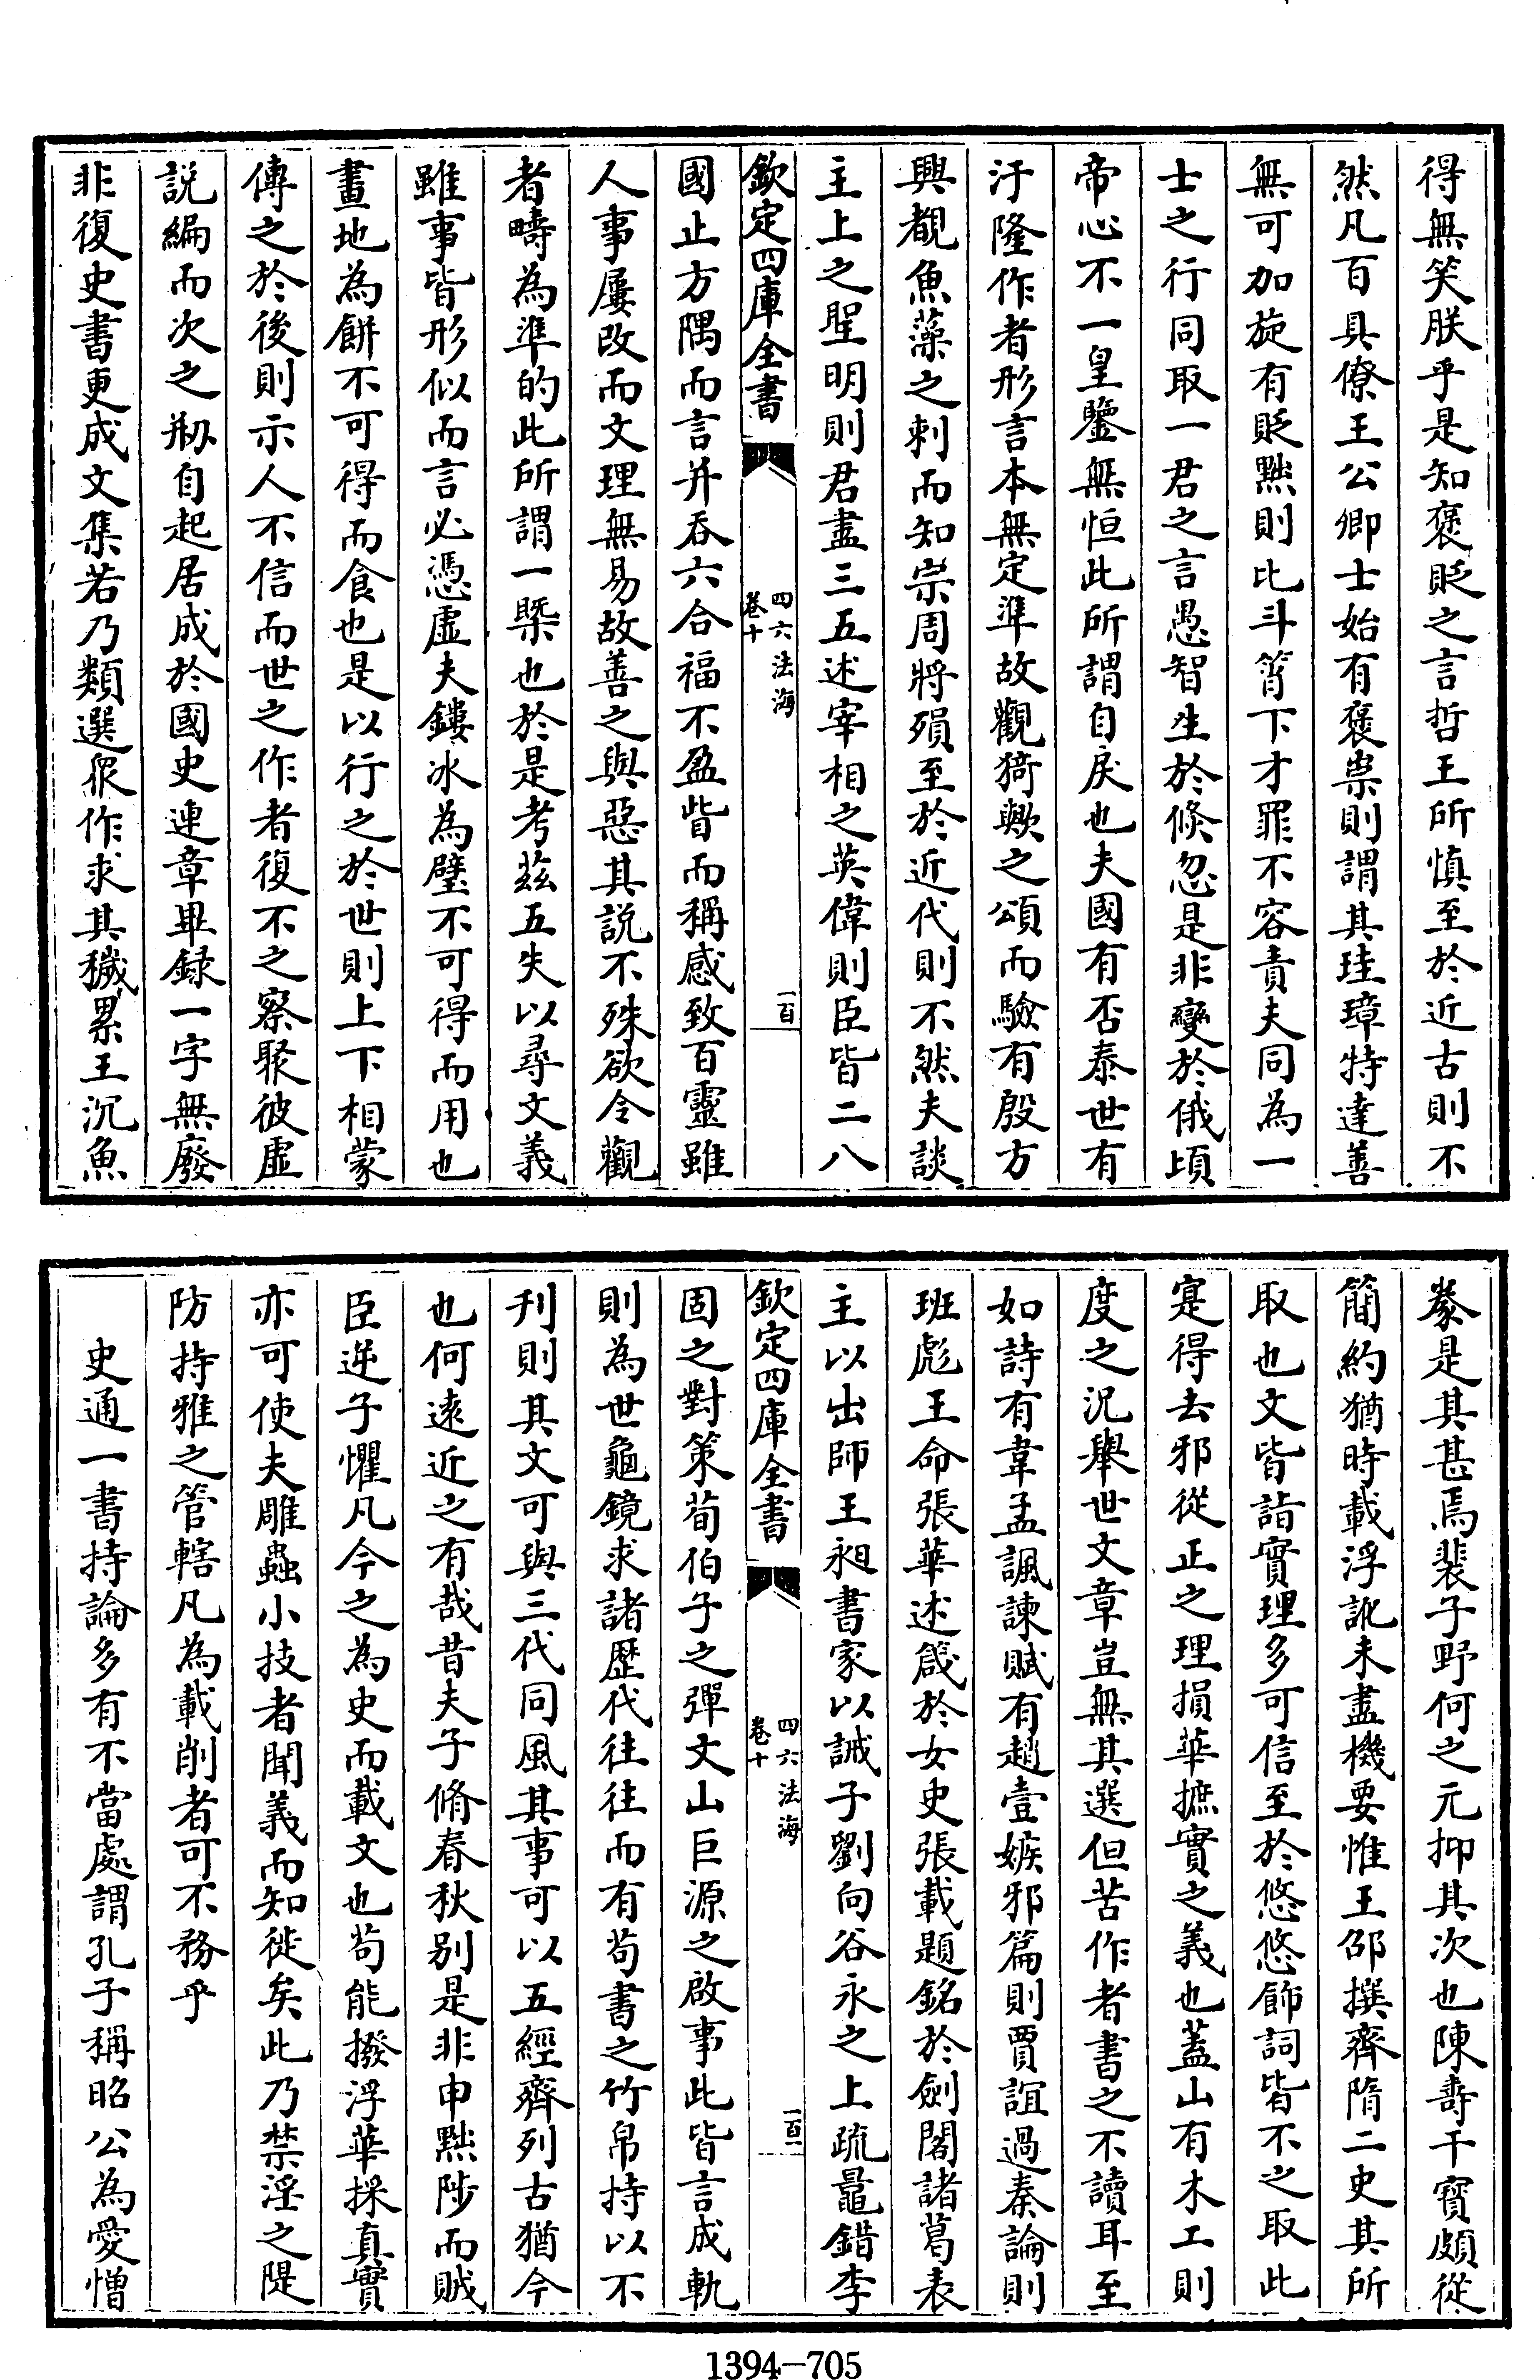 得無笑朕乎是知褒貶之言哲王所慎至於近古則不
然凡百具僚王公卿士始有褒崇則謂其珪璋特達善
無可加旋有貶黜則比斗筲下才罪不容責夫同為一
士之行同取一君之言愚智生於倏忽是非變於俄頃
帝心不一皇鑒無恒此所謂自戾也夫國有否泰世有
汙隆作者形言本無定準故觀猗歟之頌而驗有殷方
興覩魚藻之刺而知宗周將殞至於近代則不然夫談
主上之聖明則君盡三五述宰相之英偉則臣皆二八
欽定四庫全書
四六法海
卷十
一百
國止方隅而言并吞六合福不盈眥而稱感致百靈雖
人事屢改而文理無易故善之與惡其説不殊欲令觀
者疇為準的此所謂一槩也於是考茲五失以尋文義
雖事皆形似而言必憑虛夫鏤冰為璧不可得而用也
畫地為餅不可得而食也是以行之於世則上下相蒙
傳之於後則示人不信而世之作者復不之察聚彼虛
説編而次之刱自起居成於國史連章畢録一字無廢
非復史書更成文集若乃類選衆作求其穢累王沉魚
豢是其甚焉裴子野何之元抑其次也陳壽干寳頗從
簡約猶時載浮訛未盡機要惟王邵撰齊隋二史其所
取也文皆詣實理多可信至於悠悠飾詞皆不之取此
寔得去邪從正之理損華摭實之義也蓋山有木工則
度之況舉世文章豈無其選但苦作者書之不讀耳至
如詩有韋孟諷諫賦有趙壹嫉邪篇則賈誼過秦論則
班彪王命張華述箴於女史張載題銘於劍閣諸葛表
主以出師王昶書家以誡子劉向谷永之上疏鼂錯李
欽定四庫全書
四六法海
卷十
一百一
固之對策荀伯子之彈文山巨源之啟事此皆言成軌
則為世龜鏡求諸歷代往往而有苟書之竹帛持以不
刋則其文可與三代同風其事可以五經齊列古猶今
也何遠近之有哉昔夫子脩春秋别是非申黜陟而賊
臣逆子懼凡今之為史而載文也苟能撥浮華採真實
亦可使夫雕蟲小技者聞義而知徙矣此乃禁淫之隄
防持雅之管轄凡為載削者可不務乎
史通一書持論多有不當處謂孔子稱昭公為愛憎
1394-705